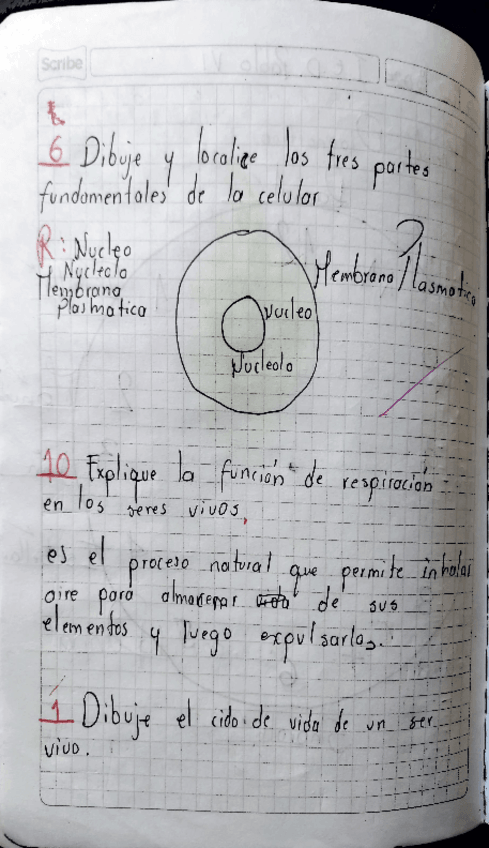 Scribe
6 Dibuje y localice las tres partes
fundamentales de la celular
R: Nucleo
Nucleolo
Membrana
Plasmatica
Membrana Plasmatica
Nucleo
Nucleolo
10 Explique la función de respiración
en los seres vivos.
es el proceso natural que permite inhalar
aire para almacenar de sus
elementos y luego expulsarlos.
1 Dibuje el ciclo de vida de un ser
vivo.